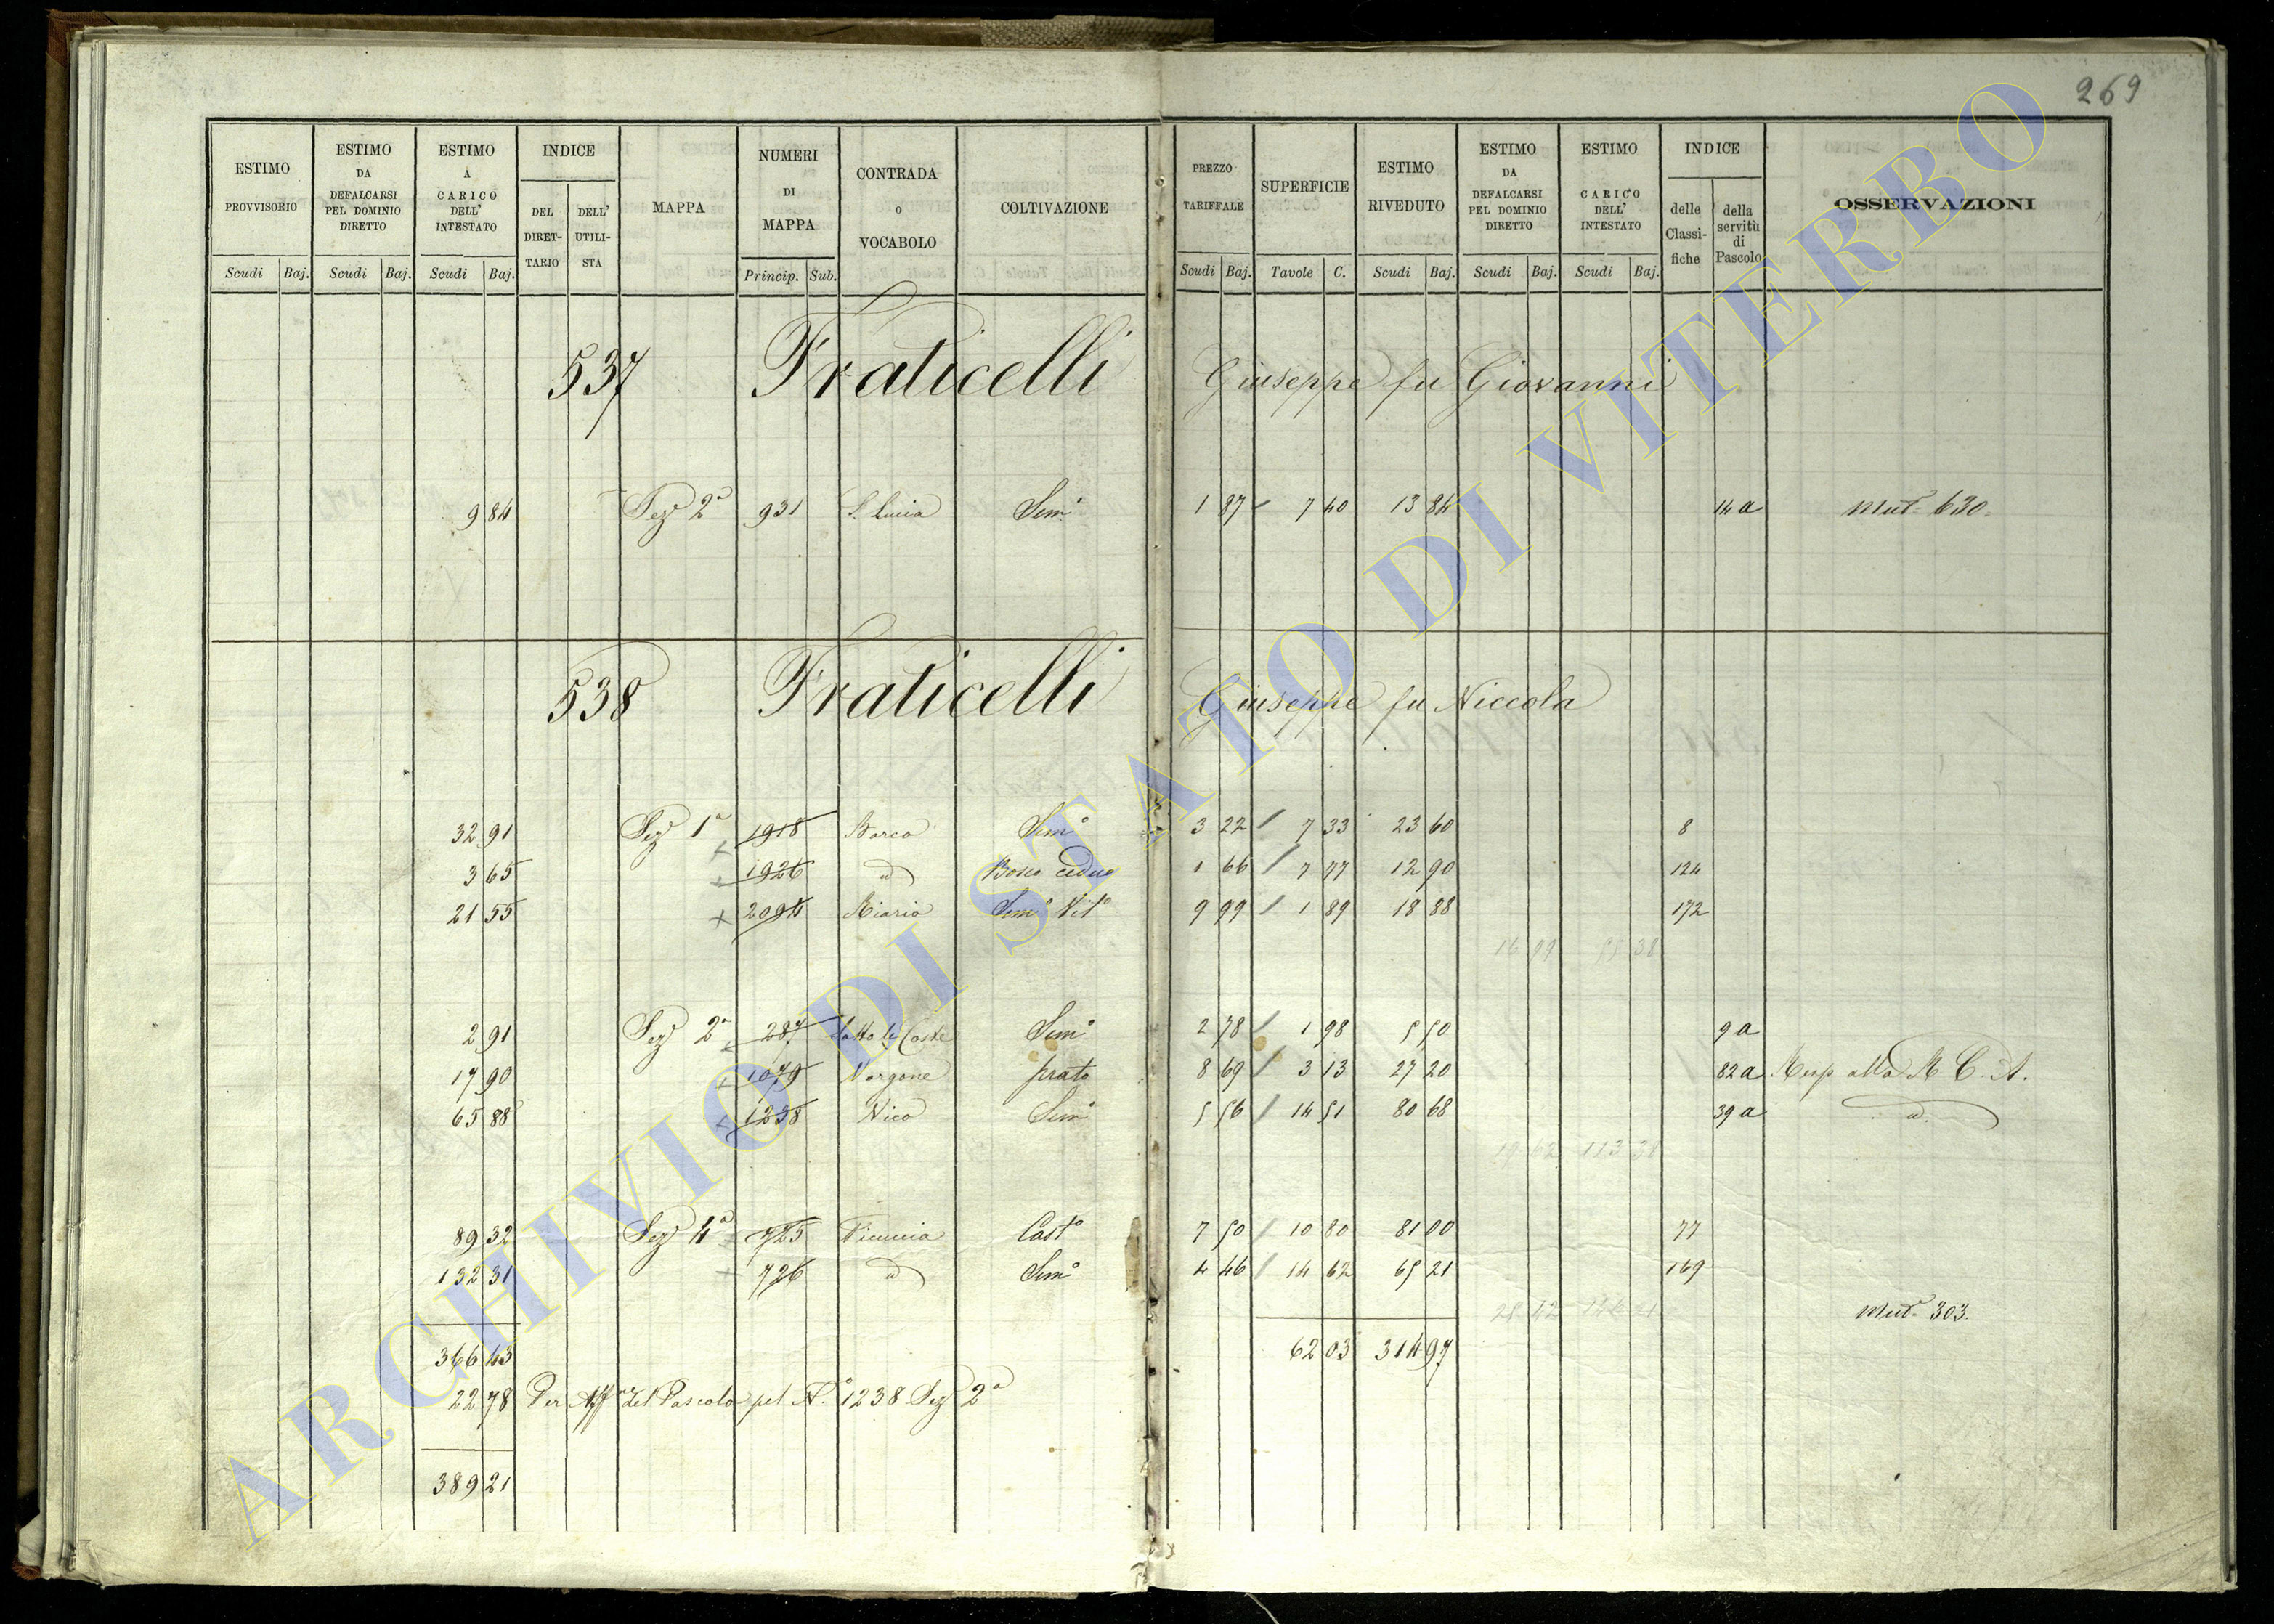 269
ESTIMO PROVVISORIO Scudi Baj.
ESTIMO DA DEFALCARSI PEL DOMINIO DIRETTO Scudi Baj.
ESTIMO A CARICO DELL' INTESTATO Scudi Baj.
INDICE DEL DIRET-TARIO DELL' UTILI-STA
MAPPA
NUMERI DI MAPPA Princip. Sub.
CONTRADA o VOCABOLO
COLTIVAZIONE
PREZZO TARIFFALE Scudi Baj.
SUPERFICIE Tavole C.
ESTIMO RIVEDUTO Scudi Baj.
ESTIMO DA DEFALCARSI PEL DOMINIO DIRETTO Scudi Baj.
ESTIMO A CARICO DELL' INTESTATO Scudi Baj.
INDICE delle Classi-fiche della servitù di Pascolo
OSSERVAZIONI
537 Fraticelli Giuseppe fu Giovanni
9 84 Sez 2a 931 S. Lucia Semo 1 87 7 40 13 84 14 a Mut. 630.
538 Fraticelli Giuseppe fu Niccola
32 91 Sez 1a 1918 Barco Semo 3 22 7 33 23 60 8
3 65 1926 d Bosco ceduo 1 66 7 77 12 90 124
21 55 2094 Riario Semo Vito 9 99 1 89 18 88 172
16 99 55 38
2 91 Sez 2a 287 Sotto le Coste Semo 2 78 1 98 5 50 9 a
17 90 1079 Vorgone prato 8 69 3 13 27 20 82 a Risp alla R C. A.
65 88 1238 Nico Semo 5 56 14 51 80 68 39 a d.
19 62 113 38
89 32 Sez 4a 725 Ficuccia Casto 7 50 10 80 81 00 77
132 31 726 d Semo 4 46 14 62 65 21 169
28 42 Mut. 303.
366 43 62 03 314 97
22 78 Per Aff del Pascolo pel No. 1238 Sez 2a
389 21
ARCHIVIO DI STATO DI VITERBO